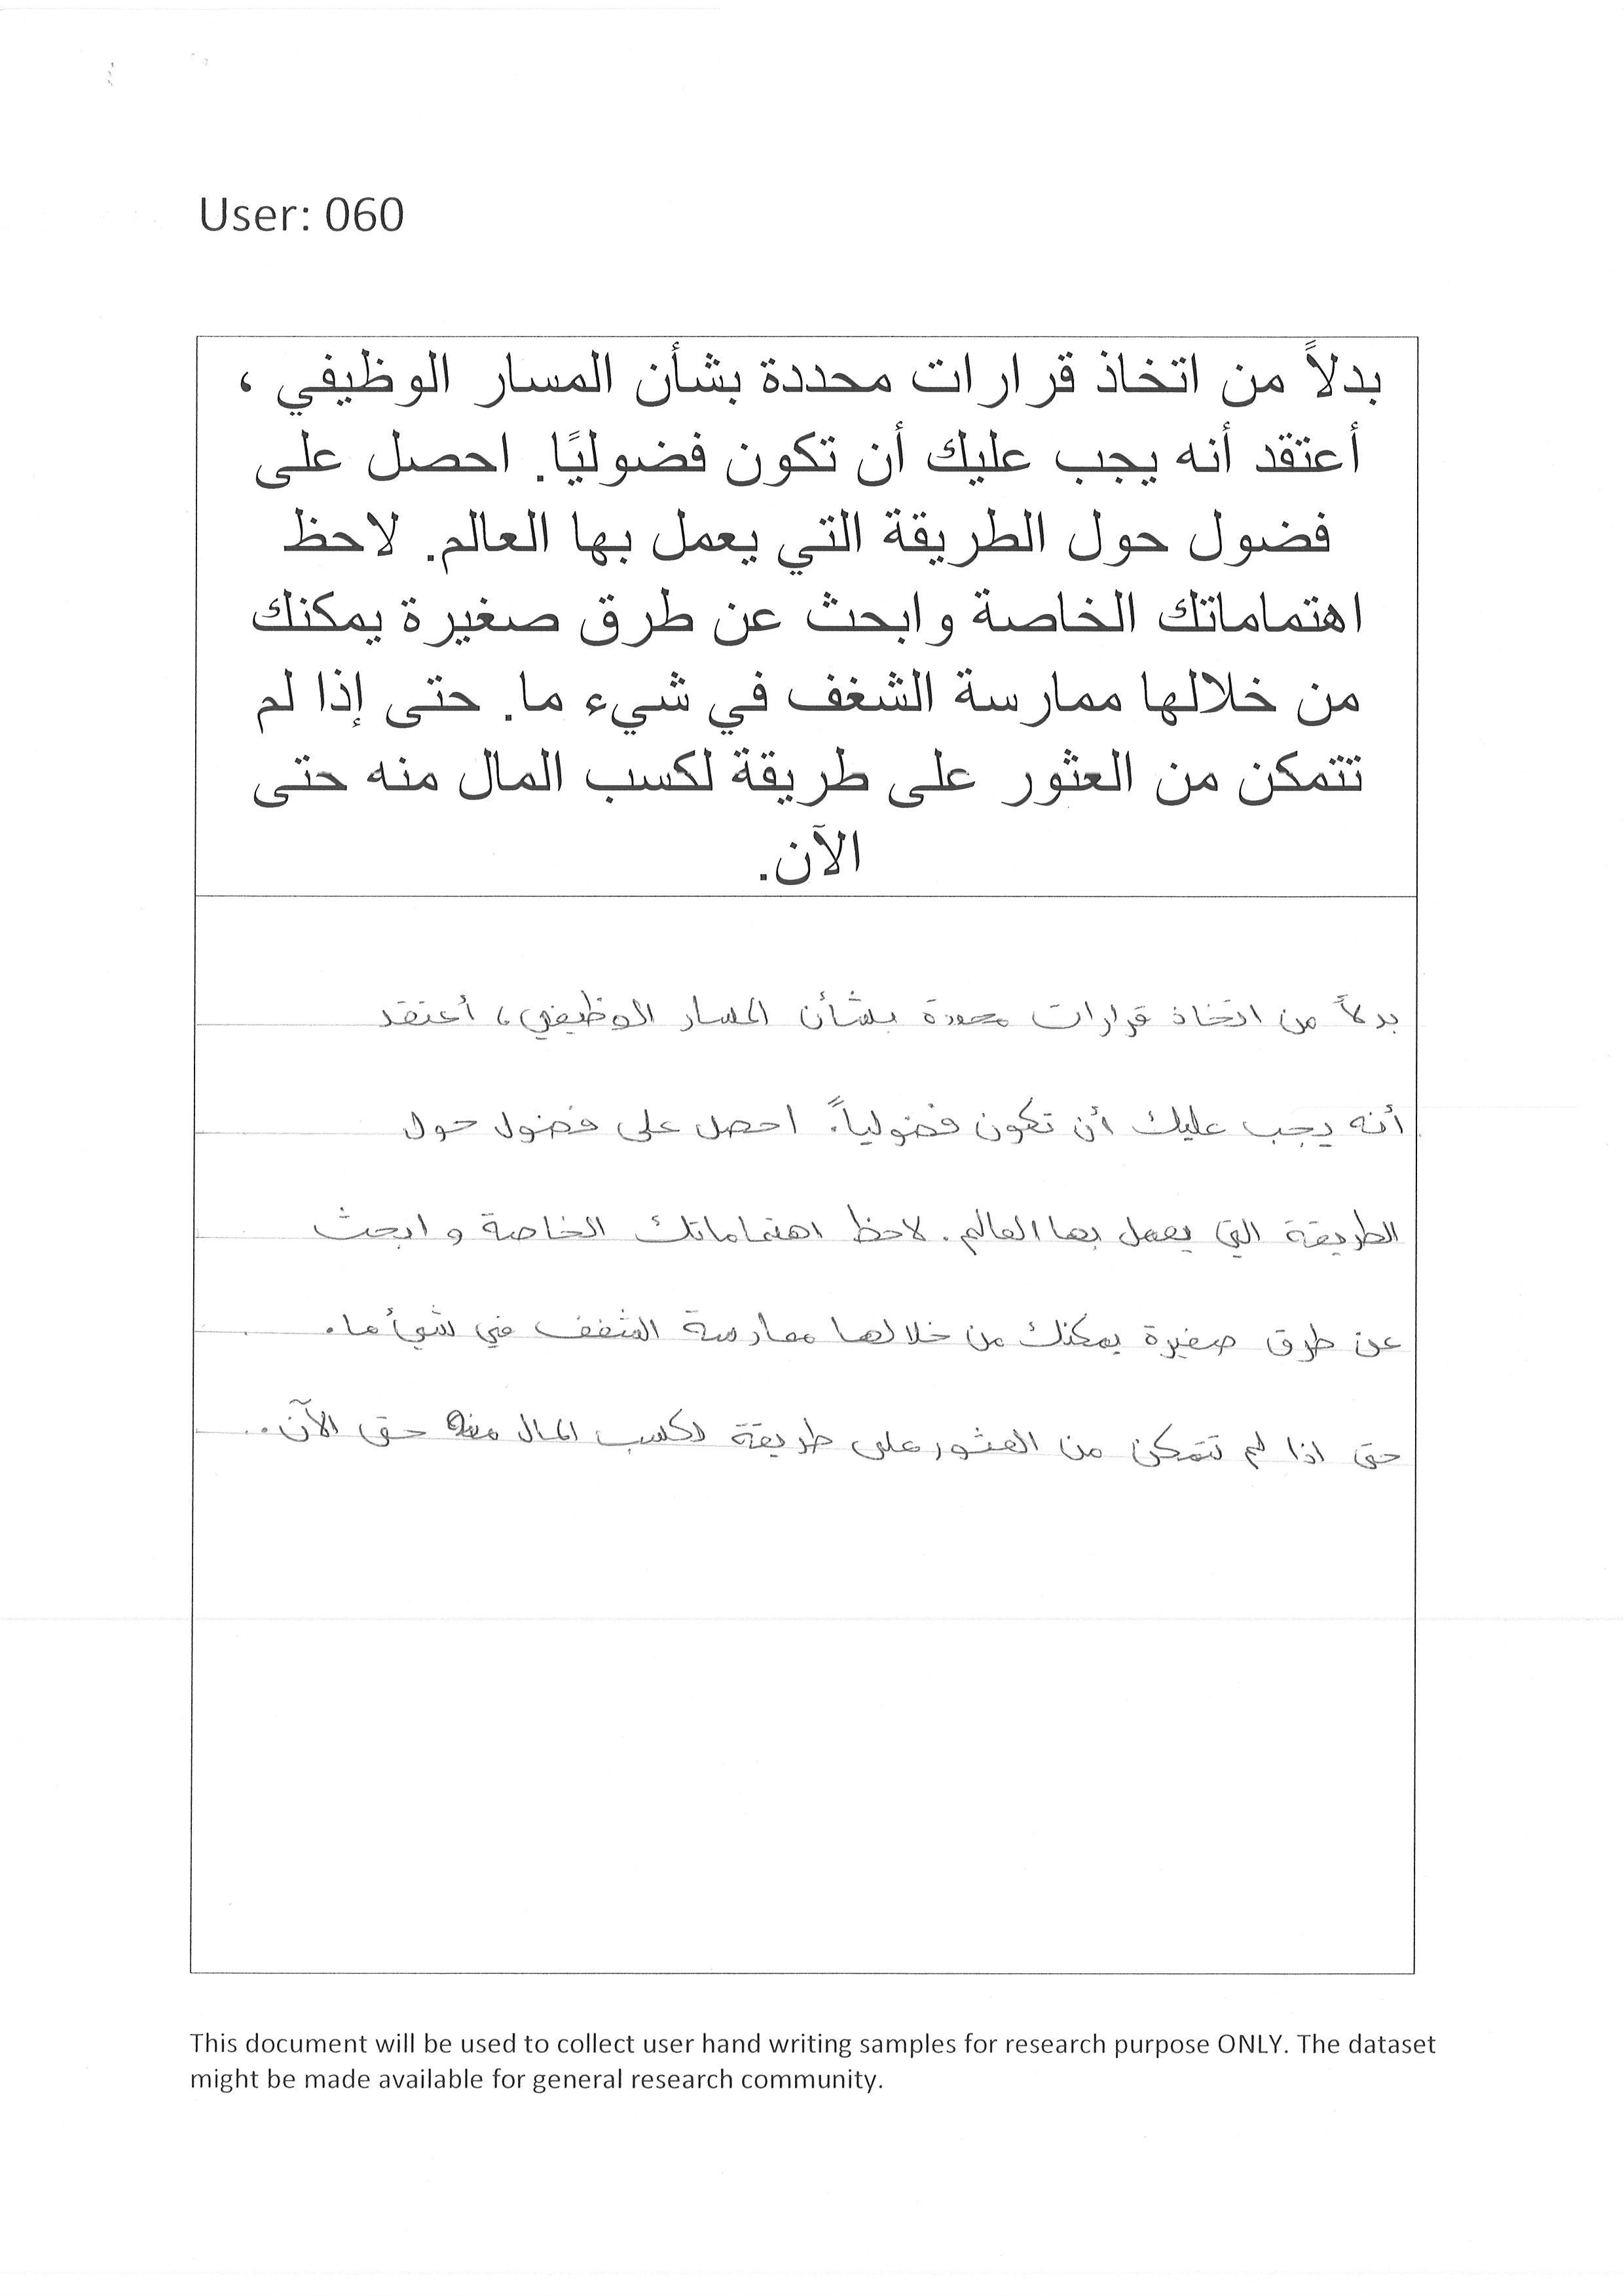 User: 060
بدلاً من اتخاذ قرارات محددة بشأن المسار الوظيفي ،
أعتقد أنه يجب عليك أن تكون فضوليًا. احصل على
فضول حول الطريقة التي يعمل بها العالم. لاحظ
اهتماماتك الخاصة وابحث عن طرق صغيرة يمكنك
من خلالها ممارسة الشغف في شيء ما. حتى إذا لم
تتمكن من العثور على طريقة لكسب المال منه حتى
الآن.
بدلاً من اتخاذ قرارات محددة بشأن المسار الوظيفي، أعتقد
أنه يجب عليك أن تكون فضولياً. احصل على فضول حول
الطريقة التي يعمل بها العالم. لاحظ اهتماماتك الخاصة و ابحث
عن طرق صغيرة يمكنك من خلالها ممارسة الشغف في شيأ ما.
حتى اذا لم تتمكن من العثور على طريقة لكسب المال منه حتى الآن..
This document will be used to collect user hand writing samples for research purpose ONLY. The dataset
might be made available for general research community.